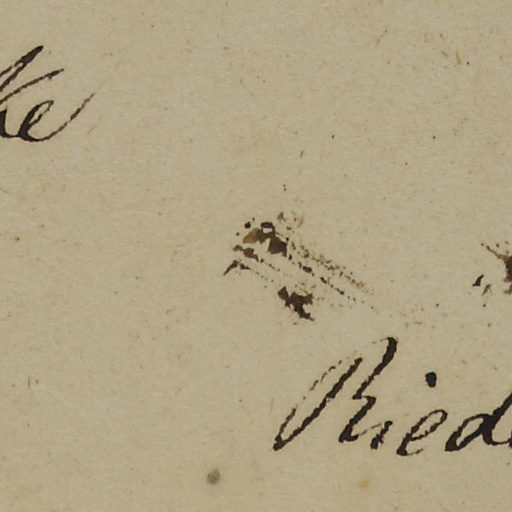 ke
Riede